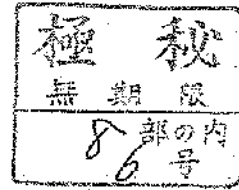 極秘
無期限
8部の内
6号